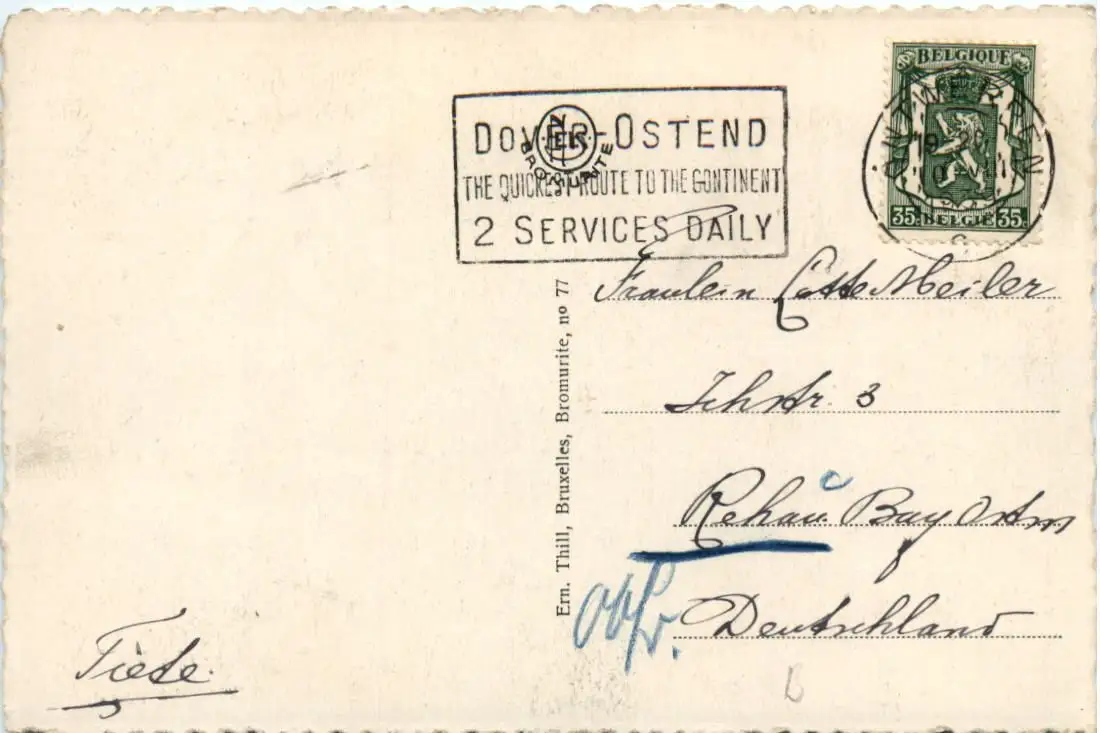 BELGIQUE
ANTWERPEN
35c BELGIË 35c
DOVER-OSTEND
THE QUICKEST ROUTE TO THE CONTINENT
2 SERVICES DAILY
BROMURITE
Ern. Thill, Bruxelles, Bromurite, no 77
Fraulein Lotte Meiler
3
Rehau Bay Ostm
Deutschland